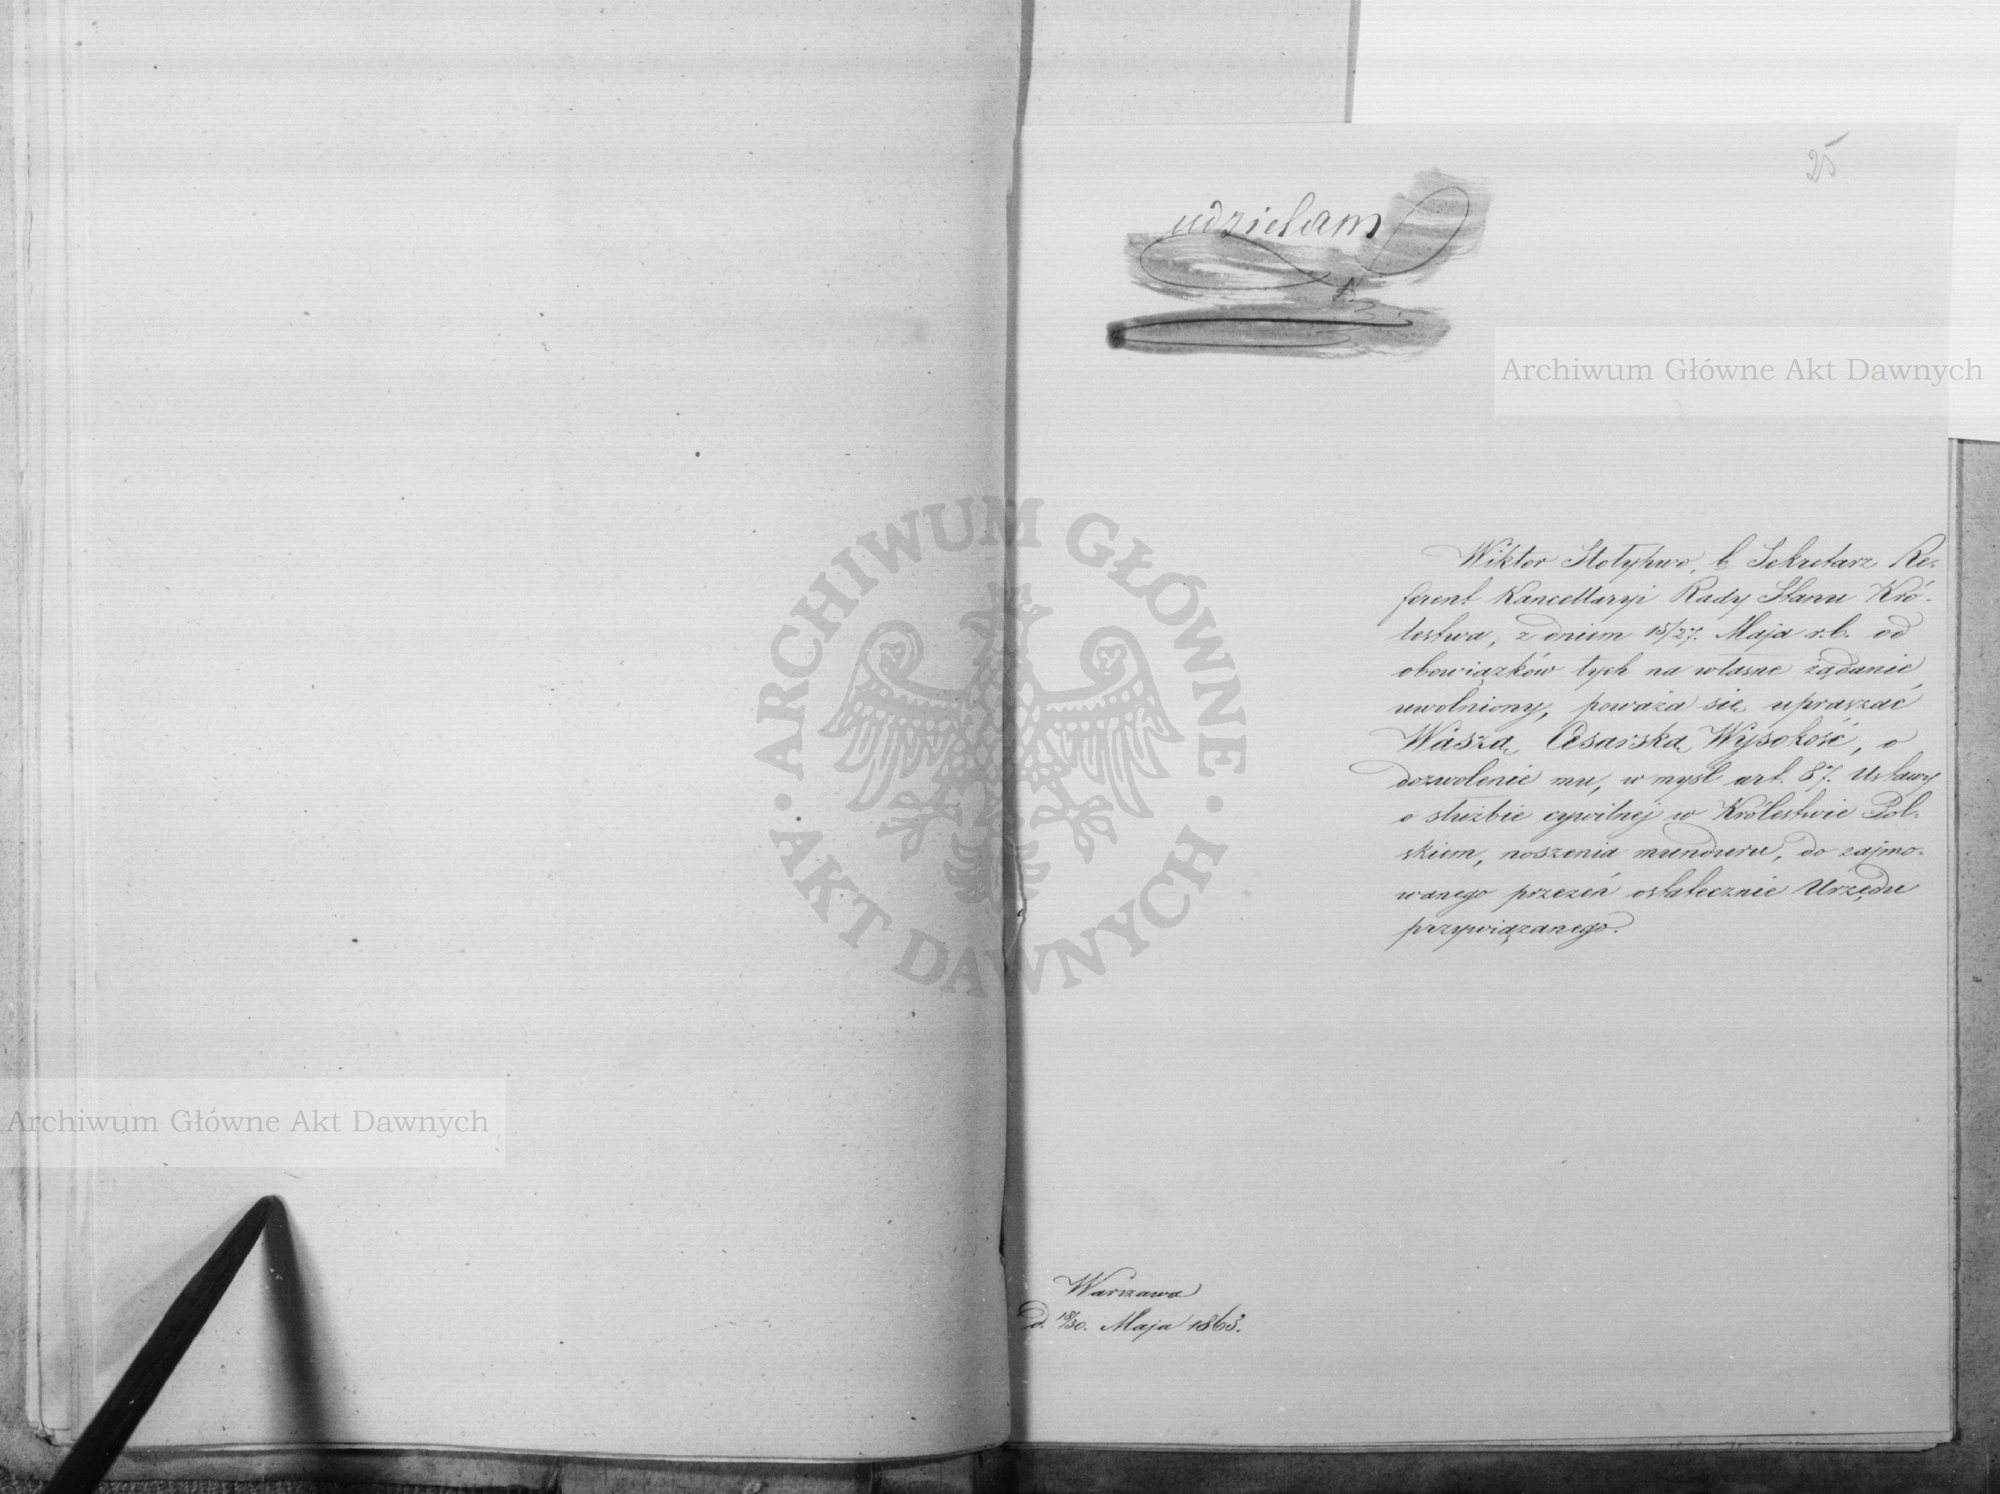 25
udzielam
Wiktor Stotyhwo, b. Sekretarz Re-
ferent Kancellaryi Rady Stanu Kró-
lestwa, z dniem 15/27. Maja r.b. od
obowiązków tych na własne żądanie
uwolniony, poważa się upraszać
Waszą Cesarską Wysokość, o
dozwolenie mu, w myśl art. 87. Ustawy
o służbie cywilnéj w Królestwie Pol-
skiem, noszenia munduru, do zajmo-
wanego przezeń ostatecznie Urzędu
przywiązanego.
Warszawa
d. 18/30. Maja 1863.
Archiwum Główne Akt Dawnych
Archiwum Główne Akt Dawnych
ARCHIWUM GŁÓWNE
AKT DAWNYCH